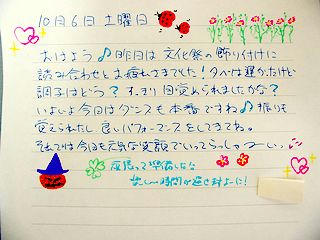 10月6日 土曜日
おはよう♪昨日は文化祭の飾り付けに
読み合わせとお疲れさまでした!夕べは遅かったけど
調子はどう?すっきり目覚められましたかな?
いよいよ今日はダンスも本番ですね♪振りも
覚えられたし良いパフォーマンスをしてきてね。
それでは今日も元気な笑顔でいってらっしゃーい。
頑張って準備した分
楽しい時間が過せますように!